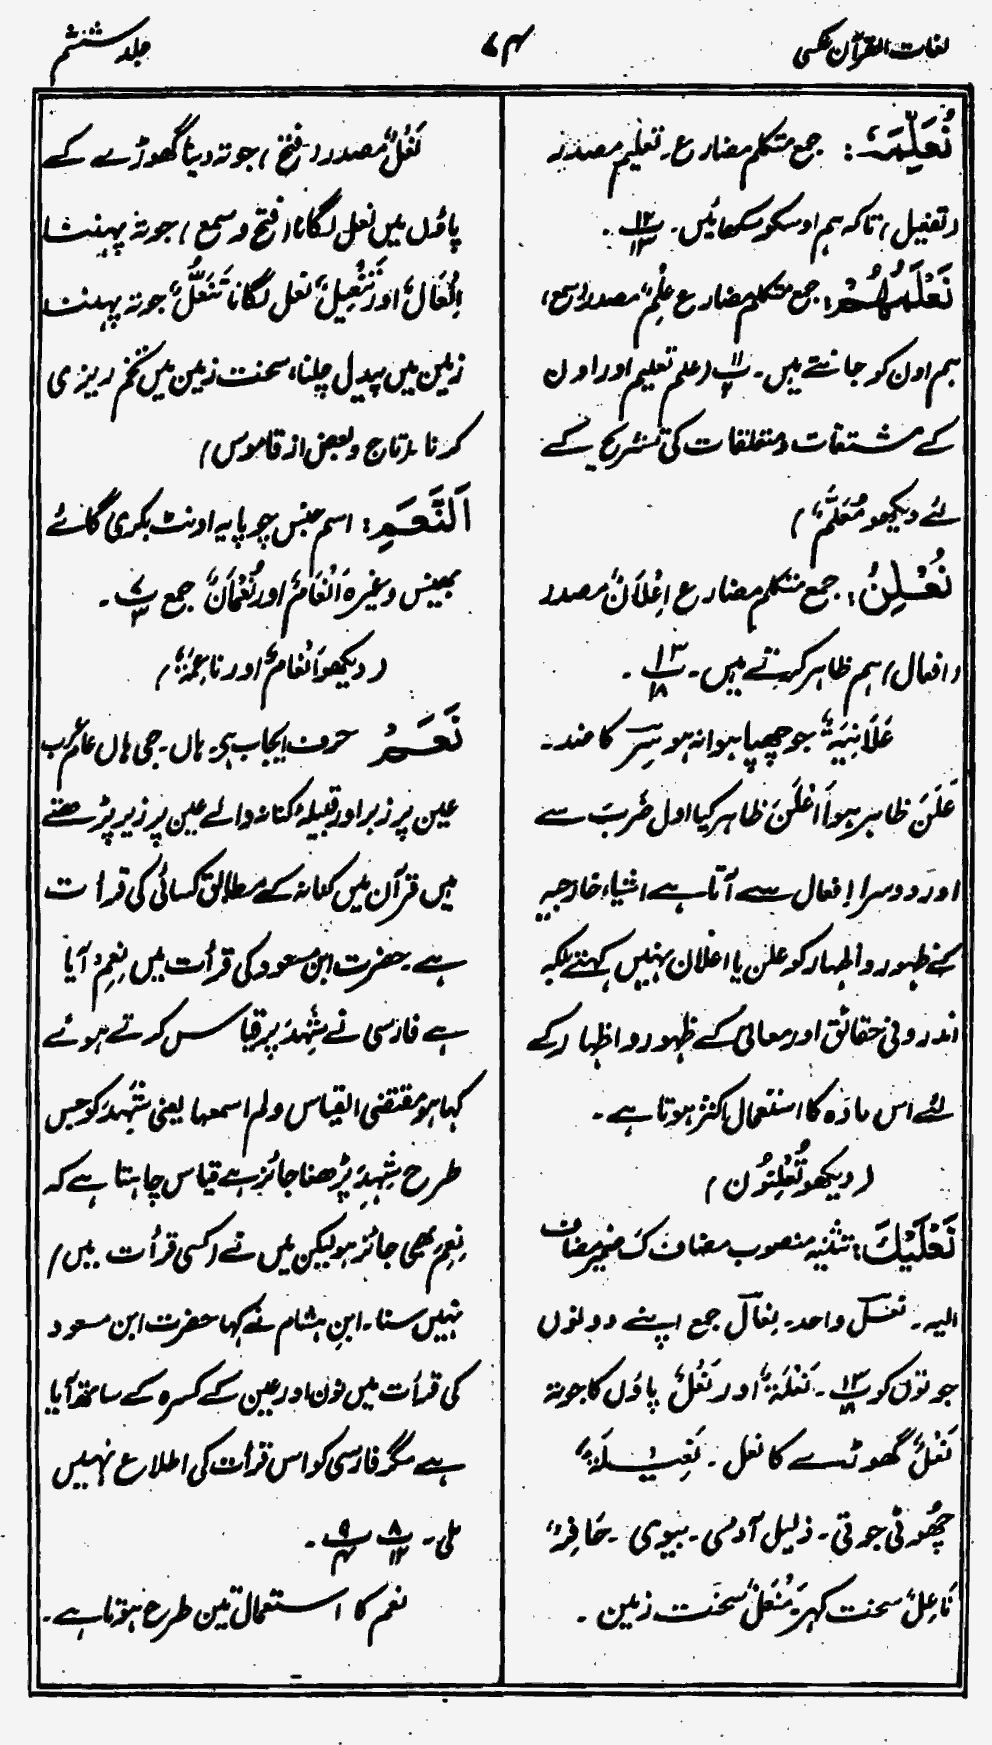 لغات القرآن عکسی
۷۴
جلد ششم
نُعَلِّمَہٗ: جمع متکلم مضارع۔ تعلیم مصدر
(تفعیل) تاکہ ہم اوسکو سکھائیں۔ پ۱۲/۱۳۔
نَعْلَمُھُمْ: جمع متکلم مضارع عِلْمٌ مصدر (سمع)
ہم اون کو جانتے ہیں۔ پ۱۱/۲ (علم تعلیم اور اون
کے مشتقات و متعلقات کی تشریح کے
لئے دیکھو مُعَلَّمٌ)
نُعْلِنُ: جمع متکلم مضارع اِعْلَانٌ مصدر
(افعال) ہم ظاہر کرتے ہیں۔ پ۱۳/۱۸۔
عَلَانِیَۃٌ جو چھپا ہوا نہ ہو سِرٌّ کا ضد۔
عَلَنَ ظاہر ہوا اَعْلَنَ ظاہر کیا اول ضَرَبَ سے
اور دوسرا اِفعال سے آتا ہے اشیاء خارجیہ
کے ظہور و اظہار کو علن یا اعلان نہیں کہتے بلکہ
اندرونی حقائق اور معانی کے ظہور و اظہار کے
لئے اس مادہ کا استعمال اکثر ہوتا ہے۔
(دیکھو تُعْلِنُوْن)
نَعْلَیْکَ: تثنیہ منصوب مضاف کَ ضمیر مضاف
الیہ۔ نَعْلٌ واحد۔ نِعَالٌ جمع اپنے دونوں
جوتوں کو پ۱۲/۱۸۔ نَعْلَۃٌ اور نَعْلٌ پاؤں کا جوتہ
نَعْلٌ گھوڑے کا نعل۔ نُعَیْلَۃٌ
چھوٹی جوتی۔ ذلیل آدمی۔ بیوی۔ حَافِرٌ
نَاعِلٌ سخت کھر۔ مَنْعَلٌ سخت زمین۔
نَعْلٌ مصدر (فتح) جوتہ دینا گھوڑے کے
پاؤں میں نعل لگانا (فتح و سمع) جوتہ پہننا
اِنْعَالٌ اور تَنْعِیلٌ نعل لگانا تَنَعُّلٌ جوتہ پہننا
زمین میں پیدل چلنا، سخت زمین میں تخم ریزی
کرنا (تاج و بعض از قاموس)
اَلنَّعَمِ: اسم جنس چوپایہ اونٹ بکری گائے
بھینس وغیرہ اَنْعَامٌ اور نُعْمَانٌ جمع پ۷/۳۔
(دیکھو اَنْعَامٌ اور نَاعِمَۃٌ)
نَعَمْ حرف ایجاب ہی۔ ہاں۔ جی ہاں عام عرب
عین پر زبر اور قبیلہ کنانہ والے عین پر زیر پڑھتے
ہیں قرآن میں کنانہ کے مطابق کسائی کی قرأت
ہے۔ حضرت ابن مسعود کی قرأت میں نِعِمْ آیا
ہے فارسی نے شِھِدَ پر قیاس کرتے ہوئے
کہا ہو مقتضی القیاس ولم اسمعہا یعنی شَھِدَ کو جس
طرح شِھِدَ پڑھنا جائز ہے قیاس چاہتا ہے کہ
نِعِمْ بھی جائز ہو لیکن میں نے (کسی قرأت میں)
نہیں سنا۔ ابنِ ہشام نے کہا حضرت ابن مسعود
کی قرأت میں نون اور عین کے کسرہ کے ساتھ آیا
ہے مگر فارسی کو اس قرأت کی اطلاع نہیں
ملی۔ پ۸/۱۲ پ۹/۴۔
نعم کا استعمال تین طرح ہوتا ہے۔